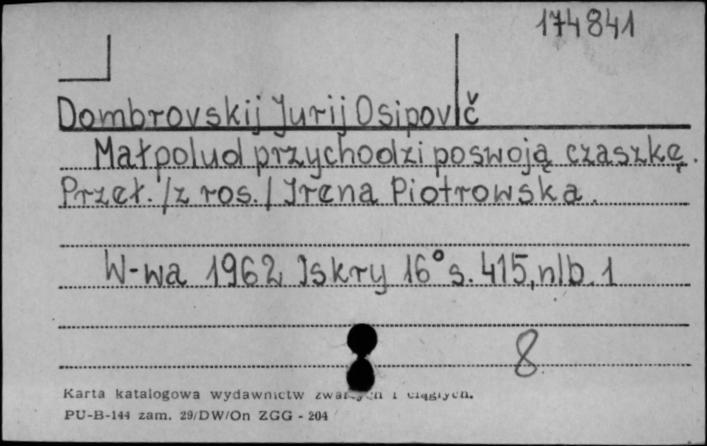 174841
Dombrovskij Jurij Osipovič
Małpolud przychodzi poswoją czaszkę.
Przeł. /z ros./ Irena Piotrowska.
W-wa 1962 Iskry 16° s. 415, nlb. 1
8
Karta katalogowa wydawnictw zwartych i ciągłych.
PU-B-144 zam. 29/DW/On ZGG - 204